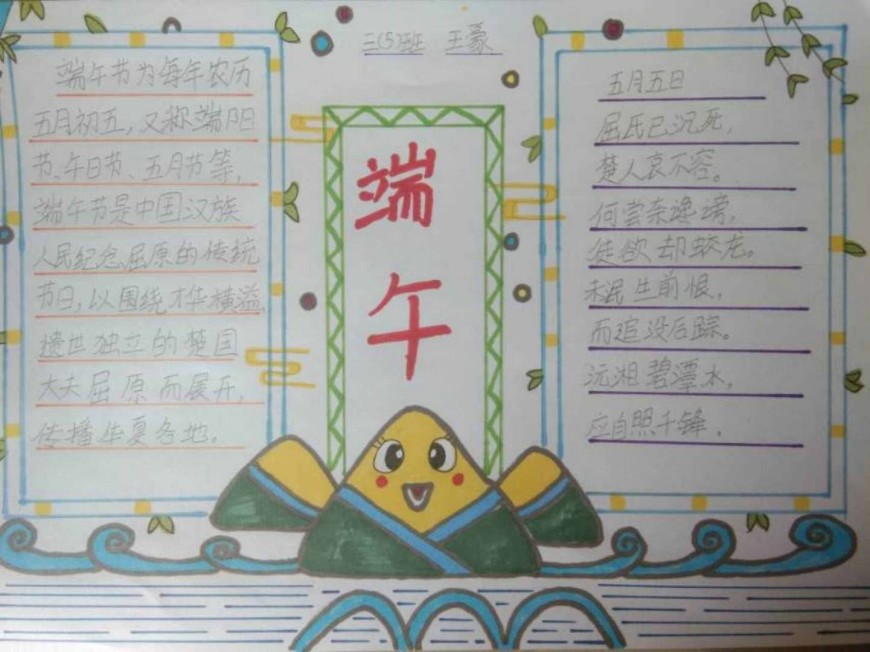 三(5)班 王豪
端午节为每年农历
五月初五,又称端阳
节、午日节、五月节等,
端午节是中国汉族
人民纪念屈原的传统
节日,以围绕才华横溢、
遗世独立的楚国
大夫屈原而展开,
传播华夏各地。
端午
五月五日
屈氏已沉死,
楚人哀不容。
何尝奈谗谤,
徒欲却蛟龙。
未泯生前恨,
而追没后踪。
沅湘碧潭水,
应自照千锋.